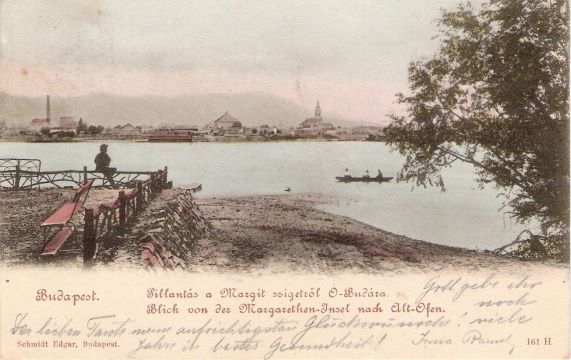 Budapest.
Pillantás a Margit szigetről O-Budára.
Blick von der Margarethen-Insel nach Alt-Ofen.
Schmidt Edgar, Budapest.
161 H
Gott gebe ihr
noch
Der lieben Tante meine aufrichtigsten Glückwunsch! viele
Jahre in bester Gesundheit! Irma